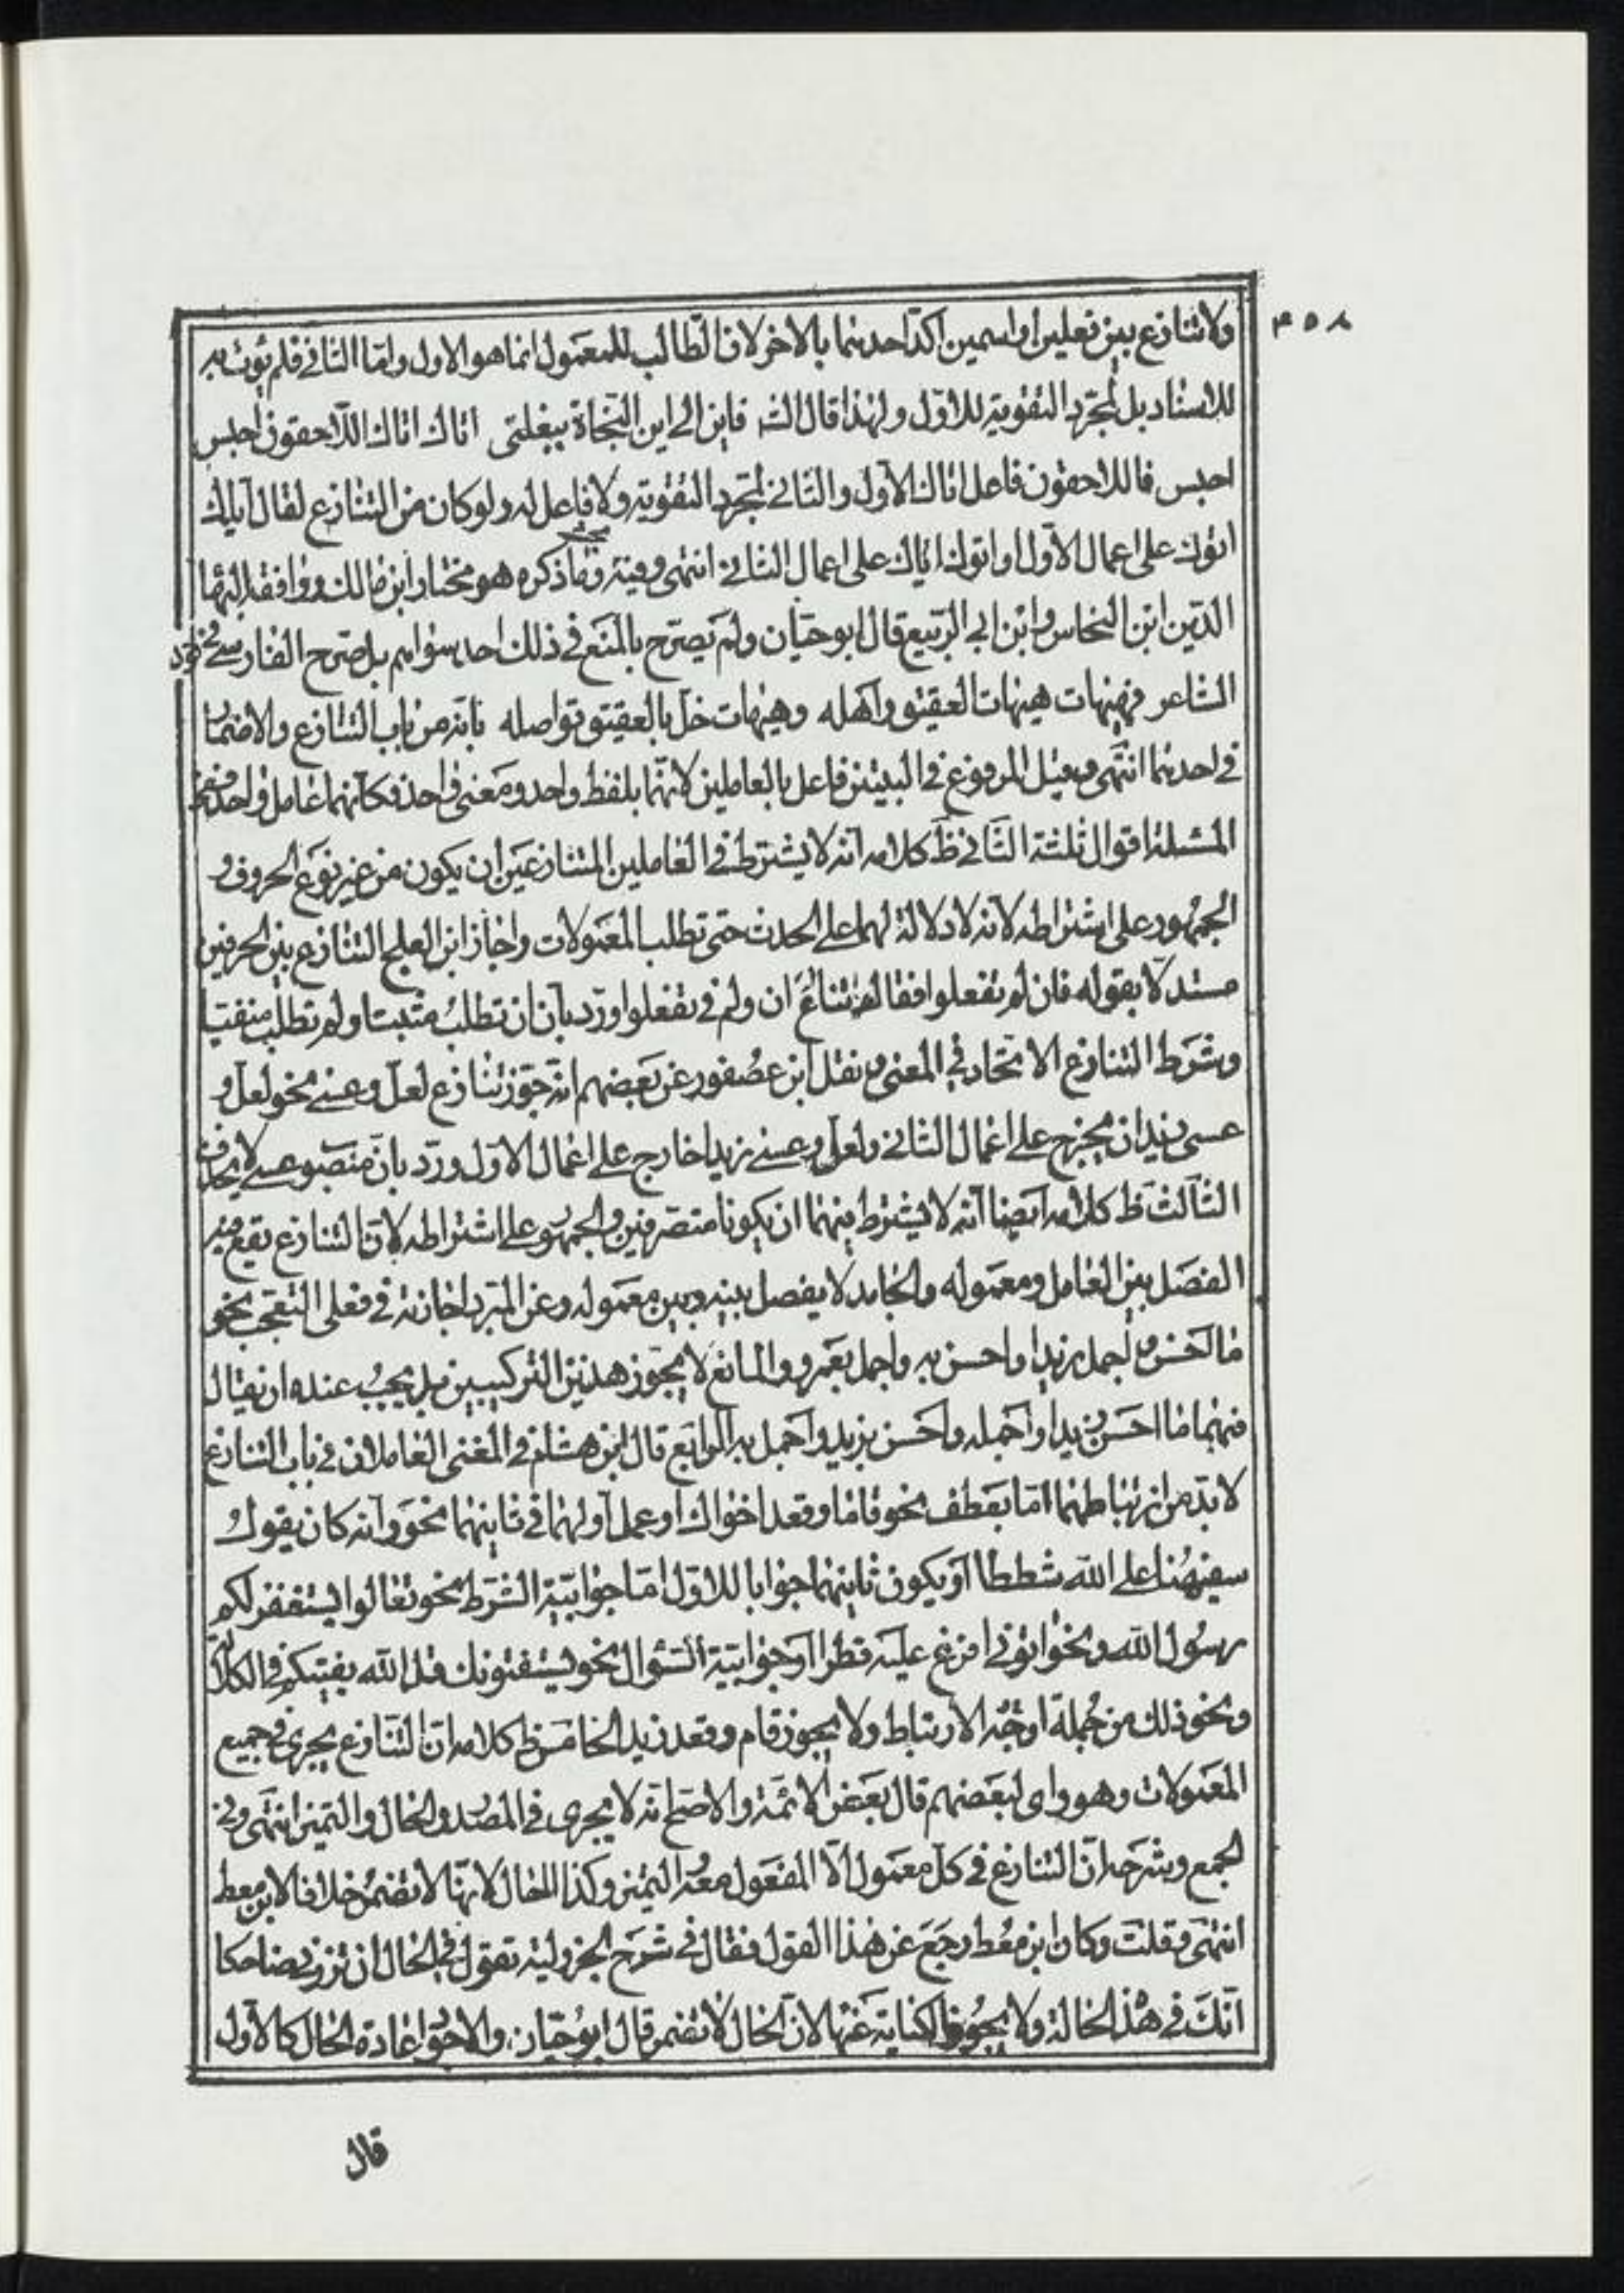 ٤٥٨
ولا تنازع بين فعلين او اسمين اكّد احدهما بالاخر لان الطالب للمعمول انما هو الاول وامّا الثاني فلم يؤت به
للاسناد بل لمجرّد التقوية للاوّل ولهذا قال الشـ فاين الى اين النجاة ببغلتي اتاك اتاك اللاحقون احبس
احبس فاللاحقون فاعل اتاك الاول والثاني لمجرد التقوية ولا فاعل له ولو كان من التنازع لقال اتاك
اتوك على اعمال الاول او اتوك اتاك على اعمال الثاني انتهى وفيه بحث وما ذكره هو مختار ابن مالك ووافقه البهاء
الدين ابن النحاس وابن ابي الربيع قال ابو حيان ولم يصرّح بالمنع في ذلك احد سواهم بل صرح الفارسي في قول
الشاعر فهيهات هيهات العقيق واهله وهيهات خل بالعقيق نواصله بانه من باب التنازع والاضمار
في احدهما انتهى وقيل المرفوع في البيتين فاعل بالعاملين لانهما بلفظ واحد ومعنى واحد فكانهما عامل واحد ففي
المسئلة اقوال ثلثة الثاني ظ كلامه انه لا يشترط في العاملين المتنازعين ان يكون من غير نوع الحروف و
الجمهور على اشتراطه لانه لا دلالة لها على الحدث حتى تطلب المعمولات واجاز ابن العلج التنازع بين الحرفين
مستدلا بقوله فان لم تفعلوا فقال تنازع ان ولم في تفعلوا وردّ بان ان تطلب مثبتا ولم تطلب منفيا
وشرط التنازع الاتحاد في المعنى ونقل ابن عصفور عن بعضهم انه جوّز تنازع لعل وعسى نحو لعل و
عسى زيد ان يخرج على اعمال الثاني ولعل وعسى زيدا خارج على اعمال الاول وردّ بان منصوب عسى لا يحذف
الثالث ظ كلامه ايضا انه لا يشترط فيهما ان يكونا متصرفين والجمهور على اشتراطه لان التنازع يقع فيه
الفصل بين العامل ومعموله والجامد لا يفصل بينه وبين معموله وعن المبرد اجازته في فعلى التعجب نحو
ما احسن واجمل زيدا واحسن به واجمل بعمرو والمانع لا يجوّز هذين التركيبين بل يجب عنده ان يقال
فيهما ما احسن زيدا واجمله واحسن بزيد واجمل به الرابع قال ابن هشام في المغني العاملان في باب التنازع
لا بدّ من ارتباطهما امّا بعطف نحو قاما وقعد اخواك او عمل اولهما في ثانيهما نحو وانه كان يقول
سفيهنا على الله شططا او يكون ثانيهما جوابا للاول امّا جوابية الشرط نحو تعالوا يستغفر لكم
رسول الله ونحو اتوني افرغ عليه قطرا او جوابية السّؤال نحو يستفتونك قل الله يفتيكم في الكلالة
ونحو ذلك من جملة اوجه الارتباط ولا يجوز قام وقعد زيد الخامس ظ كلامه ان التنازع يجرى في جميع
المعمولات وهو راى لبعضهم قال بعض الائمة والاصح انه لا يجرى في المصدر والحال والتميز انتهى وفي
الجمع وشرحه ان التنازع في كل معمول الّا المفعول معه والتميز وكذا الحال لانها لا تضمر خلافا لابن معط
انتهى وقلت وكان ابن معط رجع عن هذا القول فقال في شرح الجزولية تقول في الحال ان تزرني ضاحكا
اتك في هذه الحالة ولا يجوز الكناية عنها لان الحال لا تضمر قال ابو حيان والاجود اعادة الحال كالاول
قال